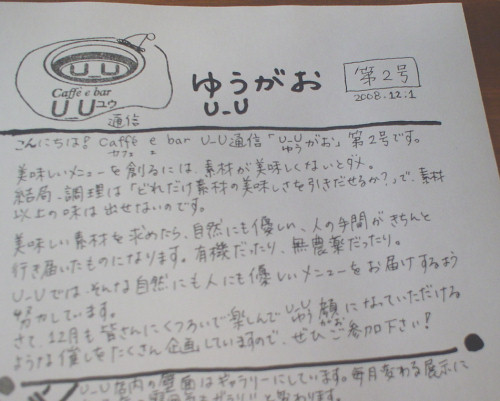 U U
Caffé e bar
U_U ユウ
通信
ゆうがお
U_U
第2号
2008.12.1
こんにちは! Caffé e bar U_U通信「U_Uがお」第2号です。
カフェ エ ゆう
美味しいメニューを創るには、素材が美味しくないとダメ。
結局、調理は「どれだけ素材の美味しさを引きだせるか?」で、素材
以上の味は出せないのです。
美味しい素材を求めたら、自然にも優しい、人の手間がきちんと
行き届いたものになります。有機だったり、無農薬だったり。
U_Uでは、そんな自然にも人にも優しいメニューをお届けするよう
努力しています。
さて、12月も皆さんにくつろいで楽しんでU_U顔になっていただける
ゆう がお
ような催しをたくさん企画していますので、ぜひご参加下さい!
U_U店内の壁面はギャラリーにしています。毎月変わる展示に